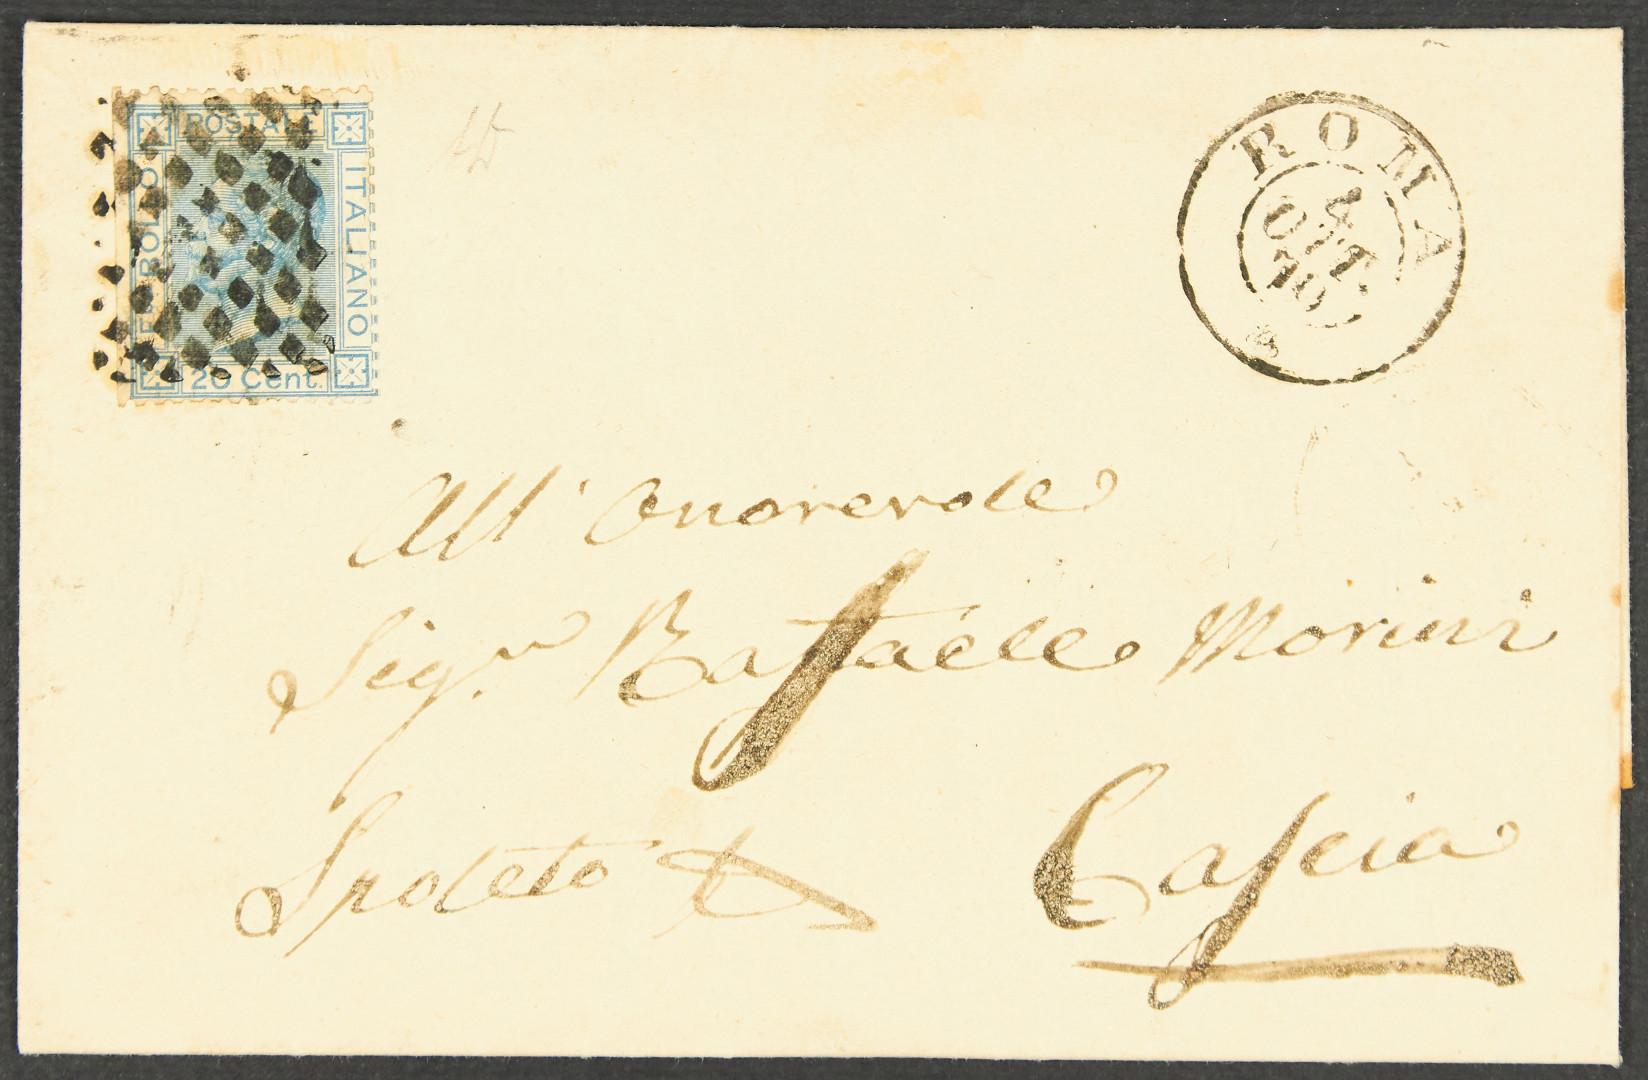 FRANCOBOLLO
POSTALE
ITALIANO
20 Cent.
ROMA
4
OTT.
70
All' Onorevole
Sigr. Raffaele Morini
Spoleto
Cascia